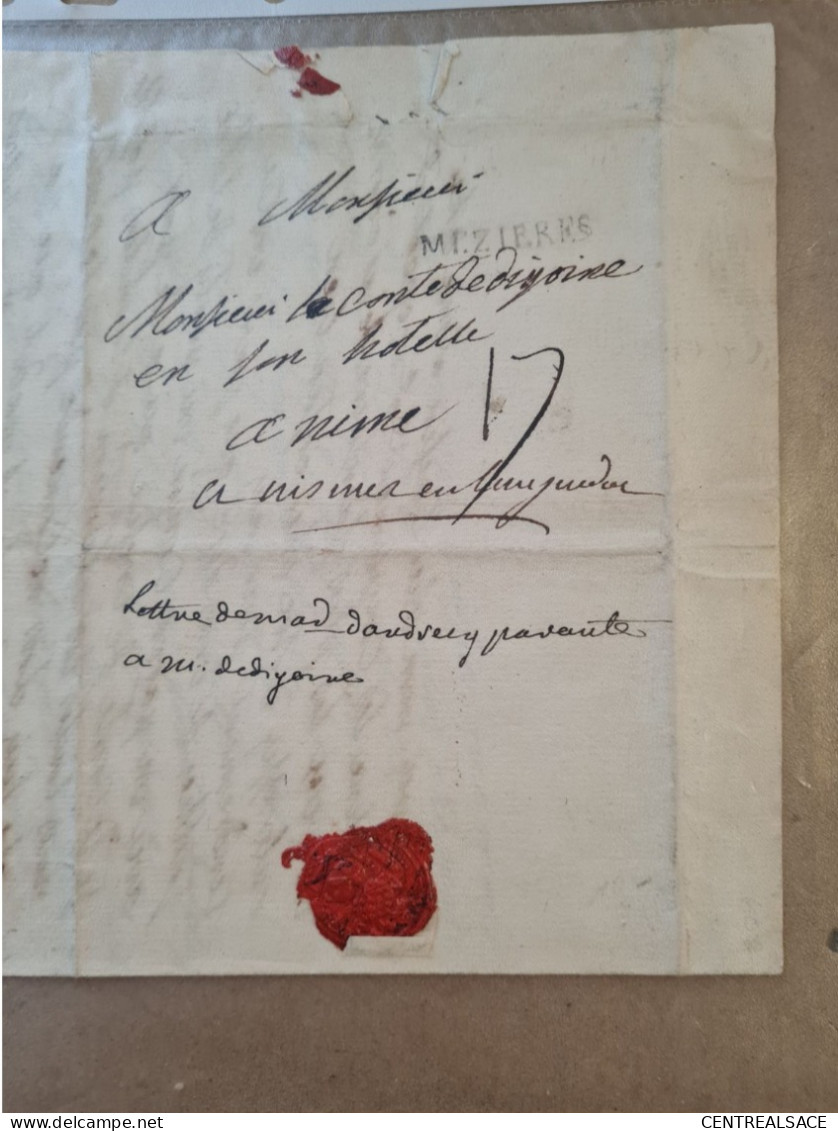 a Monsieur
MEZIERES
Monsieur le conte de digoine
en son hotelle
17
a nime
a nismes en Languedoc
Lettre de mad dandrecy parante
a m. de digoine
CENTREALSACE